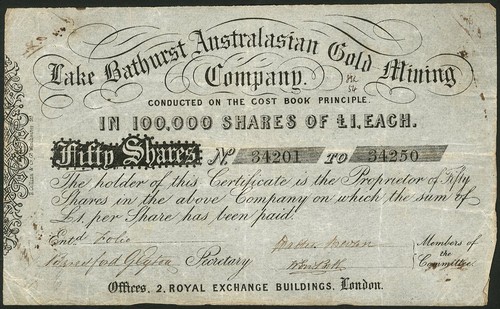 Lake Bathurst Australasian Gold Mining
Company.
CONDUCTED ON THE COST BOOK PRINCIPLE.
IN 100,000 SHARES OF £1, EACH.
Fifty Shares No 34201 TO 34250
The holder of this Certificate is the Proprietor of Fifty
Shares in the above Company on which the sum of
£1, per Share has been paid.
Entd Folio
Secretary
Members of
the
Committee.
Offices, 2, ROYAL EXCHANGE BUILDINGS, London.